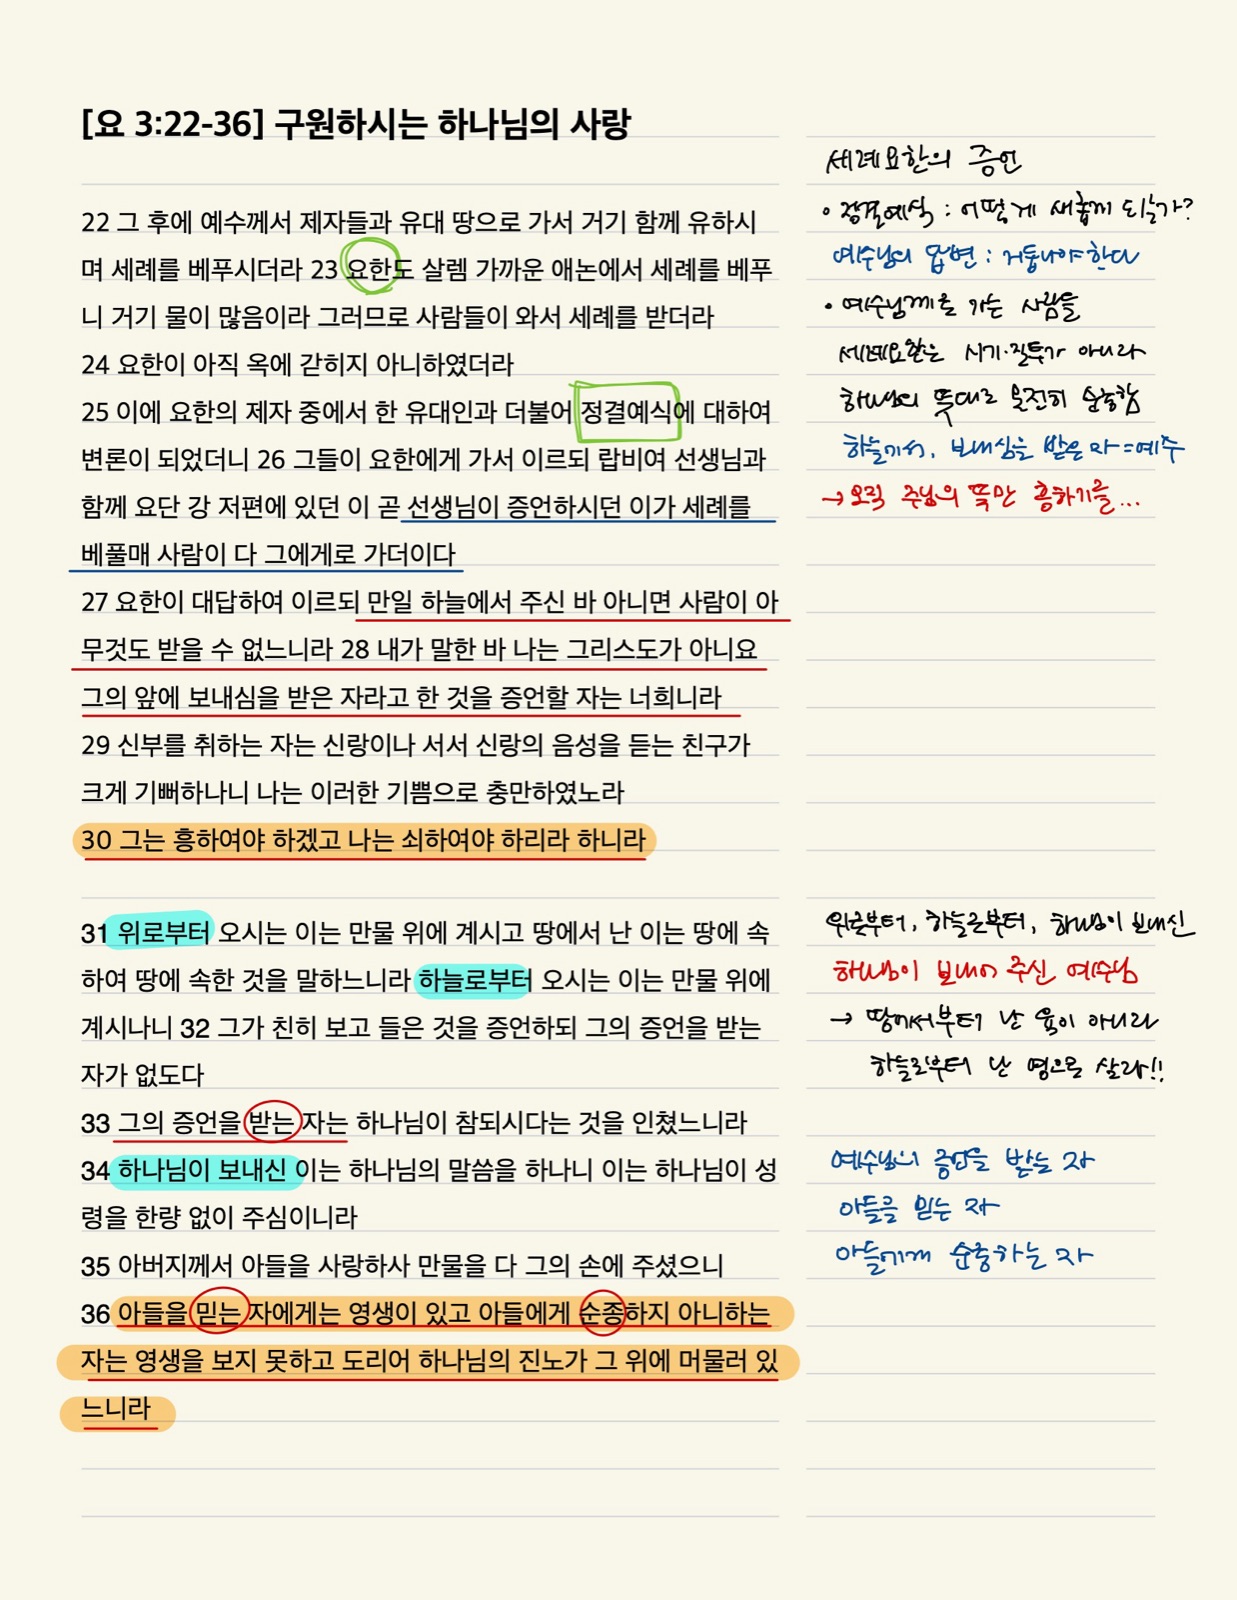 [요 3:22-36] 구원하시는 하나님의 사랑
22 그 후에 예수께서 제자들과 유대 땅으로 가서 거기 함께 유하시
며 세례를 베푸시더라 23 요한도 살렘 가까운 애논에서 세례를 베푸
니 거기 물이 많음이라 그러므로 사람들이 와서 세례를 받더라
24 요한이 아직 옥에 갇히지 아니하였더라
25 이에 요한의 제자 중에서 한 유대인과 더불어 정결예식에 대하여
변론이 되었더니 26 그들이 요한에게 가서 이르되 랍비여 선생님과
함께 요단 강 저편에 있던 이 곧 선생님이 증언하시던 이가 세례를
베풀매 사람이 다 그에게로 가더이다
27 요한이 대답하여 이르되 만일 하늘에서 주신 바 아니면 사람이 아
무것도 받을 수 없느니라 28 내가 말한 바 나는 그리스도가 아니요
그의 앞에 보내심을 받은 자라고 한 것을 증언할 자는 너희니라
29 신부를 취하는 자는 신랑이나 서서 신랑의 음성을 듣는 친구가
크게 기뻐하나니 나는 이러한 기쁨으로 충만하였노라
30 그는 흥하여야 하겠고 나는 쇠하여야 하리라 하니라
세례요한의 증언
• 정결예식 : 어떻게 새롭게 되는가?
예수님의 답변 : 거듭나야한다
• 예수님께로 가는 사람들
세례요한은 시기·질투가 아니라
하나님의 뜻대로 온전히 순종함
하늘에서, 보내심을 받은 자=예수
→ 오직 주님의 뜻만 흥하기를...
31 위로부터 오시는 이는 만물 위에 계시고 땅에서 난 이는 땅에 속
하여 땅에 속한 것을 말하느니라 하늘로부터 오시는 이는 만물 위에
계시나니 32 그가 친히 보고 들은 것을 증언하되 그의 증언을 받는
자가 없도다
33 그의 증언을 받는 자는 하나님이 참되시다는 것을 인쳤느니라
34 하나님이 보내신 이는 하나님의 말씀을 하나니 이는 하나님이 성
령을 한량 없이 주심이니라
35 아버지께서 아들을 사랑하사 만물을 다 그의 손에 주셨으니
36 아들을 믿는 자에게는 영생이 있고 아들에게 순종하지 아니하는
자는 영생을 보지 못하고 도리어 하나님의 진노가 그 위에 머물러 있
느니라
위로부터, 하늘로부터, 하나님이 보내신
하나님이 보내어 주신 예수님
→ 땅에서부터 난 육이 아니라
하늘로부터 난 영으로 살라!!
예수님의 증언을 받는 자
아들을 믿는 자
아들에게 순종하는 자